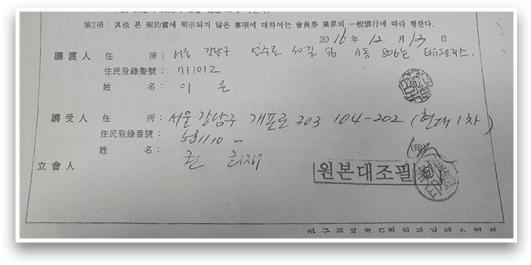 第2項 : 其他 본 契約書에 明示되지 않은 事項에 대하여는 會員券 業界의 一般慣行에 따라 행한다.
2016 年 12 月 13 日
讓渡人 住 所 : 서울 강남구 언주로 30길 56 A동
住民登錄番號 : 711012
姓 名 : 이 은
讓受人 住 所 : 서울 강남구 개포로 303 104-202 (현대1차)
住民登錄番號 : 581110 -
姓 名 : 권 희재
(印)
立會人
원본대조필